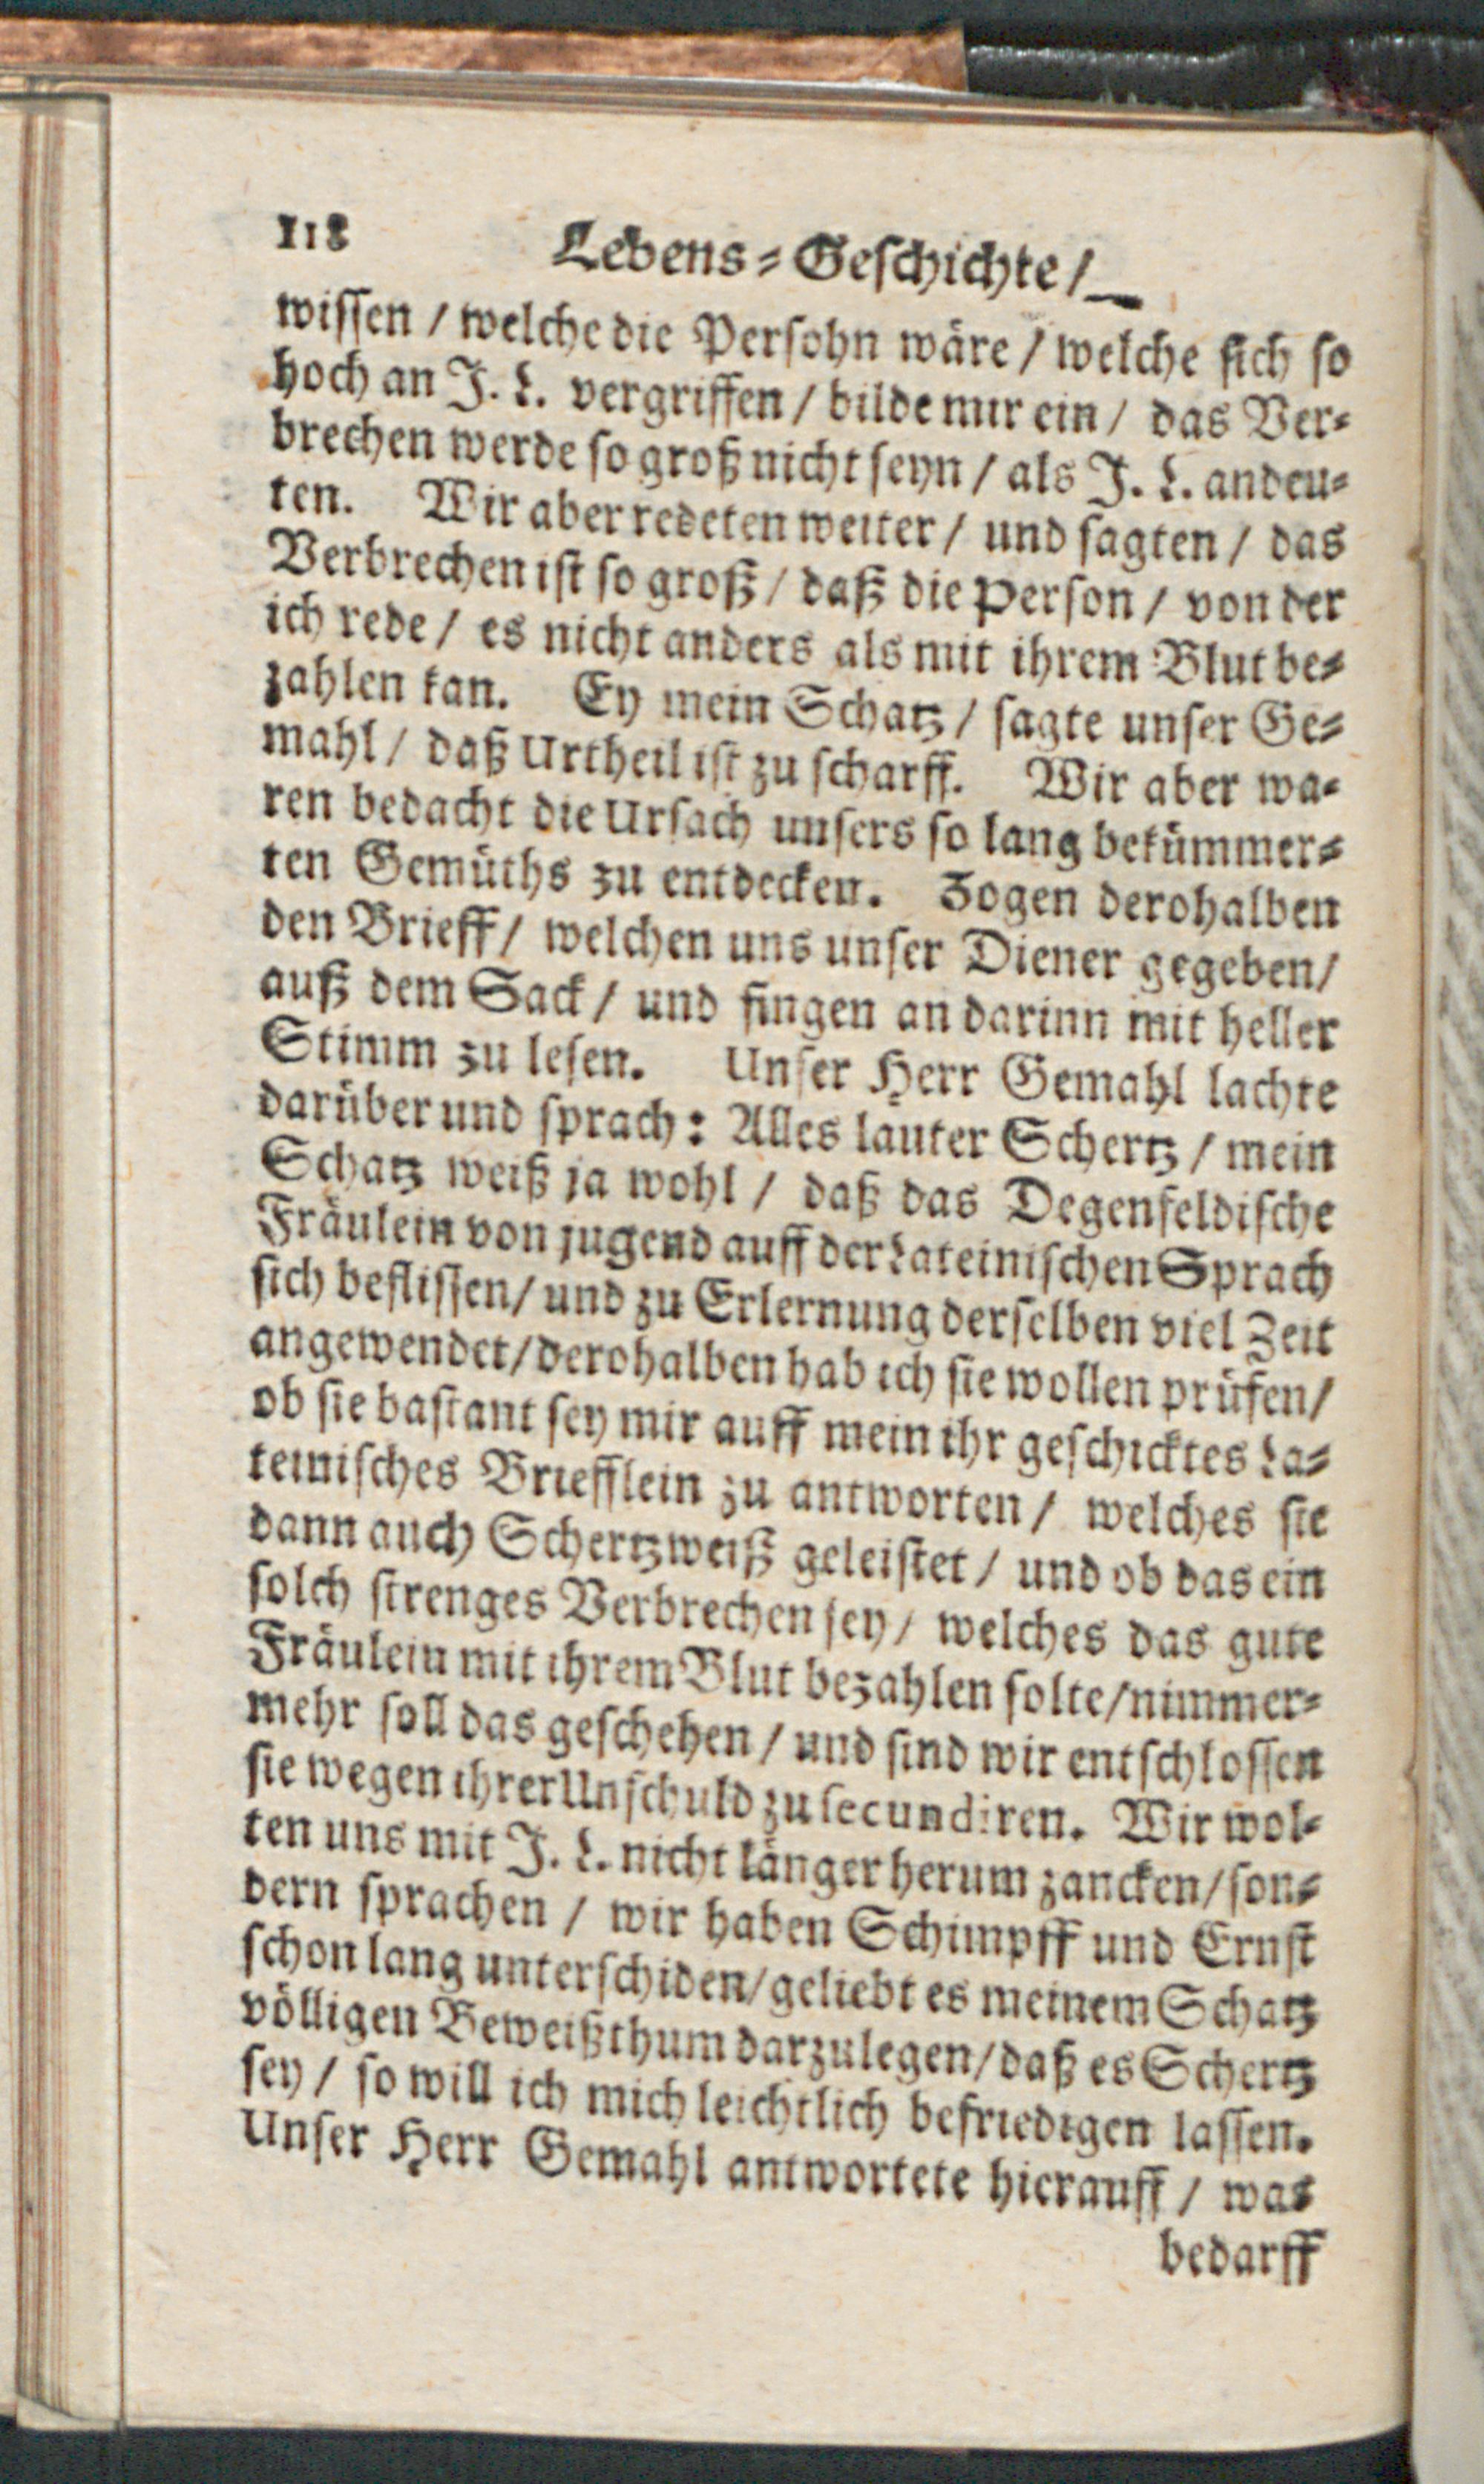 118 Lebens-Geschichte/
wissen / welche die Persohn wäre / welche sich so
hoch an J. L. vergriffen / bilde mir ein / das Ver-
brechen werde so groß nicht seyn / als J. L. andeu-
ten. Wir aber redeten weiter / und sagten / das
Verbrechen ist so groß / daß die Person / von der
ich rede / es nicht anders als mit ihrem Blut be-
zahlen kan. Ey mein Schatz / sagte unser Ge-
mahl / daß Urtheil ist zu scharff. Wir aber wa-
ren bedacht die Ursach unsers so lang bekümmer-
ten Gemüths zu entdecken. Zogen derohalben
den Brieff / welchen uns unser Diener gegeben/
auß dem Sack / und fingen an darinn mit heller
Stimm zu lesen. Unser Herr Gemahl lachte
darüber und sprach: Alles lauter Schertz / mein
Schatz weiß ja wohl / daß das Degenfeldische
Fräulein von jugend auff der Lateinischen Sprach
sich beflissen/ und zu Erlernung derselben viel Zeit
angewendet/derohalben hab ich sie wollen prüfen/
ob sie bastant sey mir auff mein ihr geschicktes La-
teinisches Briefflein zu antworten / welches sie
dann auch Schertzweiß geleistet / und ob das ein
solch strenges Verbrechen sey / welches das gute
Fräulein mit ihrem Blut bezahlen solte/nimmer-
mehr soll das geschehen / und sind wir entschlossen
sie wegen ihrer Unschuld zu secundiren. Wir wol-
ten uns mit J. L. nicht länger herum zancken/son-
dern sprachen / wir haben Schimpff und Ernst
schon lang unterschiden/geliebt es meinem Schatz
völligen Beweißthum darzulegen/daß es Schertz
sey / so will ich mich leichtlich befriedigen lassen.
Unser Herr Gemahl antwortete hierauff / was
bedarff